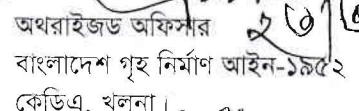 অথরাইজড অফিসার
বাংলাদেশ গৃহ নির্মাণ আইন-১৯৫২
কেডিএ, খুলনা।